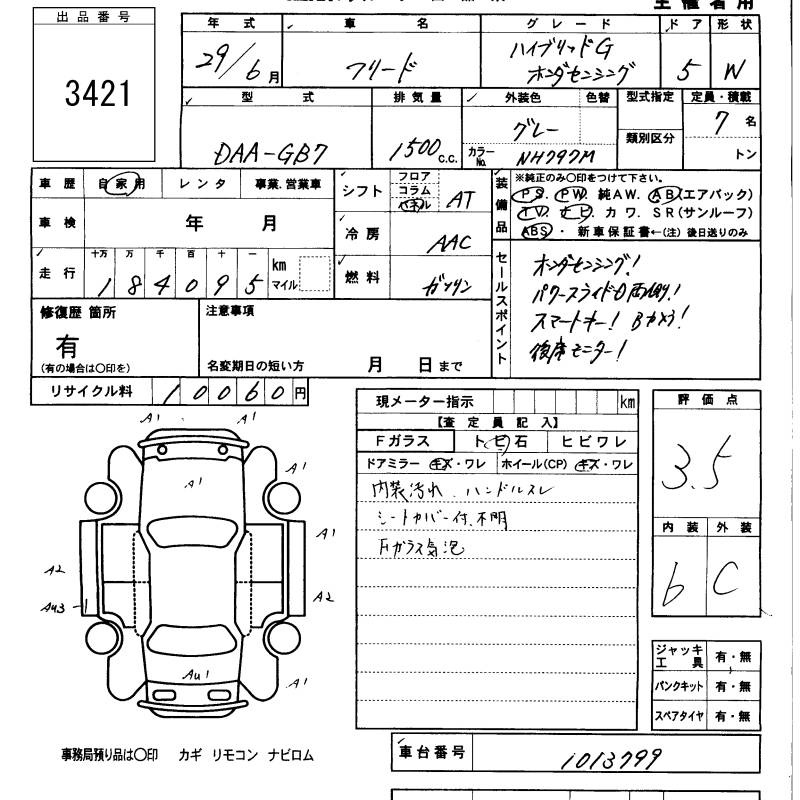 出品番号
3421
年式 車名 グレード ドア 形状
29/6月 フリード ハイブリッドG ホンダセンシング 5 W
型式 排気量 外装色 色替 型式指定 定員・積載
DAA-GB7 1500c.c. グレー 類別区分 7名
カラーNo. NH797M トン
車歴 自家用 レンタ 事業.営業車
車検 年 月
走行 十万 万 千 百 十 一
184095 km マイル
シフト フロア コラム パネル AT
冷房 AAC
燃料 ガソリン
装備品 ※純正のみ〇印をつけて下さい。
PS. PW. 純AW. AB(エアバック)
TV. ナビ. カワ. SR(サンルーフ)
ABS・ 新車保証書←(注) 後日送りのみ
セールスポイント
ホンダセンシング!
パワースライドD両側!
スマートキー! Bカメラ!
後席モニター!
修復歴 箇所
有
(有の場合は〇印を)
注意事項
名変期日の短い方 月 日まで
リサイクル料 10060円
現メーター指示 km
【査定員記入】
Fガラス トビ石 ヒビワレ
ドアミラー キズ・ワレ ホイール(CP) キズ・ワレ
内装汚れ. ハンドルスレ
シートカバー付.不明
Fガラス気泡
評価点
3.5
内装 外装
b C
A1 A1
A1 A1
A1
A2
A2
AU3
AU1
A1
ジャッキ工具 有・無
パンクキット 有・無
スペアタイヤ 有・無
事務局預り品は〇印 カギ リモコン ナビロム
車台番号 1013799